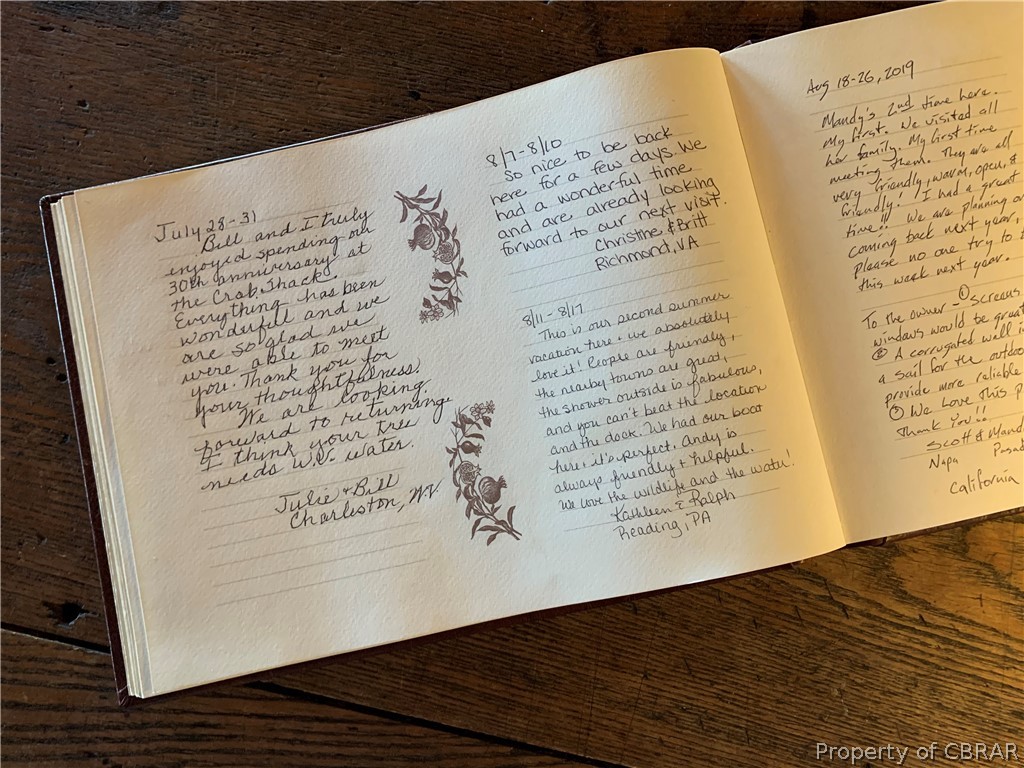 July 28-31
Bill and I truly
enjoyed spending our
30th anniversary at
the Crab Shack.
Everything has been
wonderful and we
are so glad we
were able to meet
you. Thank you for
your thoughtfulness!
We are looking
forward to returning
I think your tree
needs W.V. water.
Julie & Bill
Charleston, WV.
8/7-8/10
So nice to be back
here for a few days. We
had a wonderful time
and are already looking
forward to our next visit.
Christine & Britt
Richmond, VA
8/11 - 8/17
This is our second summer
vacation here & we absolutely
love it! People are friendly,
the nearby towns are great,
the shower outside is fabulous,
and you can't beat the location
and the dock. We had our boat
here, it's perfect. Andy is
always friendly & helpful.
We love the wildlife and the water!
Kathleen & Ralph
Reading, PA
Aug 18-26, 2019
Mandy's 2nd time here.
My first. We visited all
her family. My first time
meeting them. They are all
very friendly, warm, open, &
friendly! I had a great
time!! We are planning on
coming back next year,
please no one try to
this week next year.
To the owner - ① Screens
windows would be great
② A corrugated wall
a sail for the outdoor
provide more reliable
③ We Love this
Thank You!!
Scott &
Napa
California
Property of CBRAR